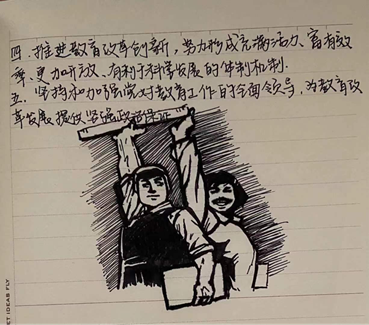 四、推进教育改革创新，努力形成充满活力、富有效
率、更加开放、有利于科学发展的体制机制.
五、坚持和加强党对教育工作的全面领导，为教育改
革发展提供坚强政治保证
ET IDEAS FLY